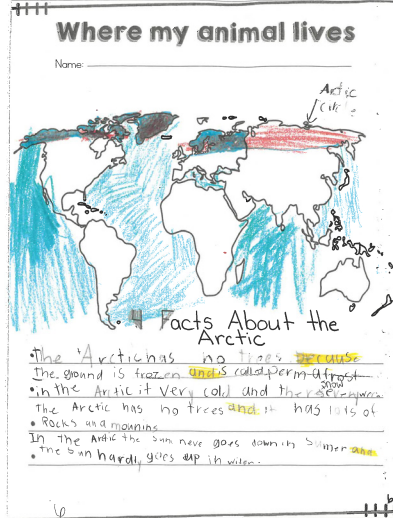 Where my animal lives
Name:
Arctic
Circle
4 Facts About the
Arctic
• The Arctic has no trees because
The ground is frozen and is calld permafrost
• in the Arctic it very cold and theres snow everywere
The Arctic has no trees and it has lots of
• Rocks and mountins
In the Arctic the sun neve goes down in Sumer and
• the sun hardly goes up in winter.
6